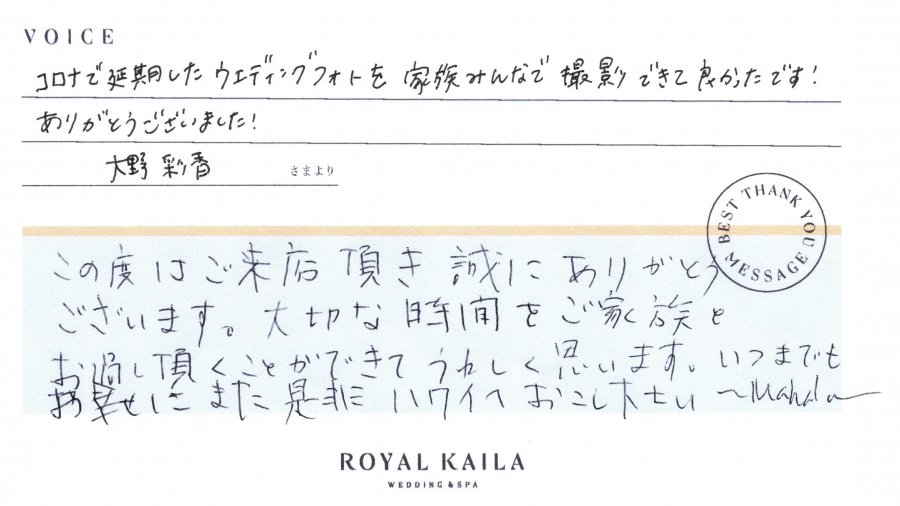 VOICE
コロナで延期したウエディングフォトを家族みんなで撮影できて良かったです!
ありがとうございました!
大野 彩香 さまより
BEST THANK YOU MESSAGE
この度はご来店頂き誠にありがとう
ございます。大切な時間をご家族と
お過し頂くことができてうれしく思います。いつまでも
お幸せに また是非ハワイへおこし下さい 〜Mahalo〜
ROYAL KAILA
WEDDING & SPA